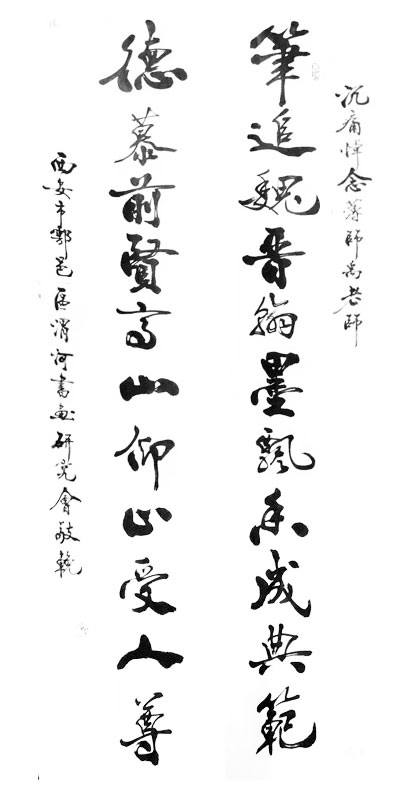 沉痛悼念尊師尚老師
筆追魏晋翰墨飄香成典範
德慕前賢高山仰止受人尊
西安市鄠邑區渭河書畫研究會敬輓